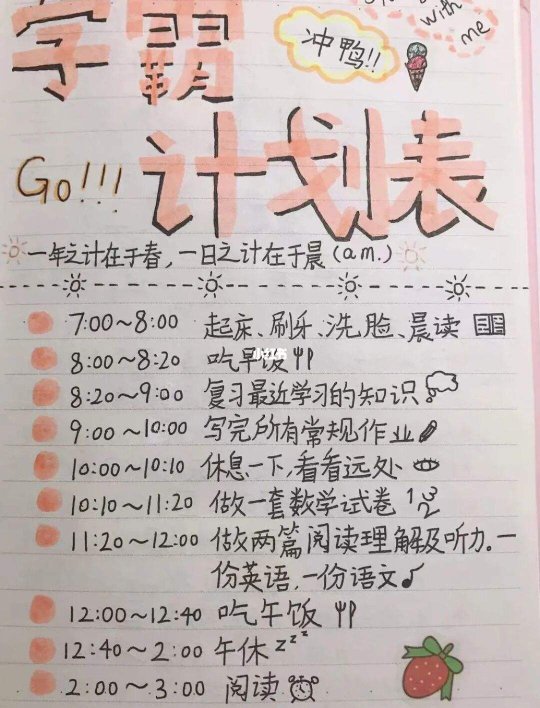 with
me
学霸
冲鸭!!
Go!!!
计划表
一年之计在于春,一日之计在于晨(am.)
7:00~8:00 起床、刷牙、洗脸、晨读
8:00~8:20 吃早饭
小红书
8:20~9:00 复习最近学习的知识
9:00~10:00 写完所有常规作业
10:00~10:10 休息一下,看看远处
10:10~11:20 做一套数学试卷 1 2 3
11:20~12:00 做两篇阅读理解及听力.一
份英语,一份语文
12:00~12:40 吃午饭
12:40~2:00 午休 zzz
2:00~3:00 阅读